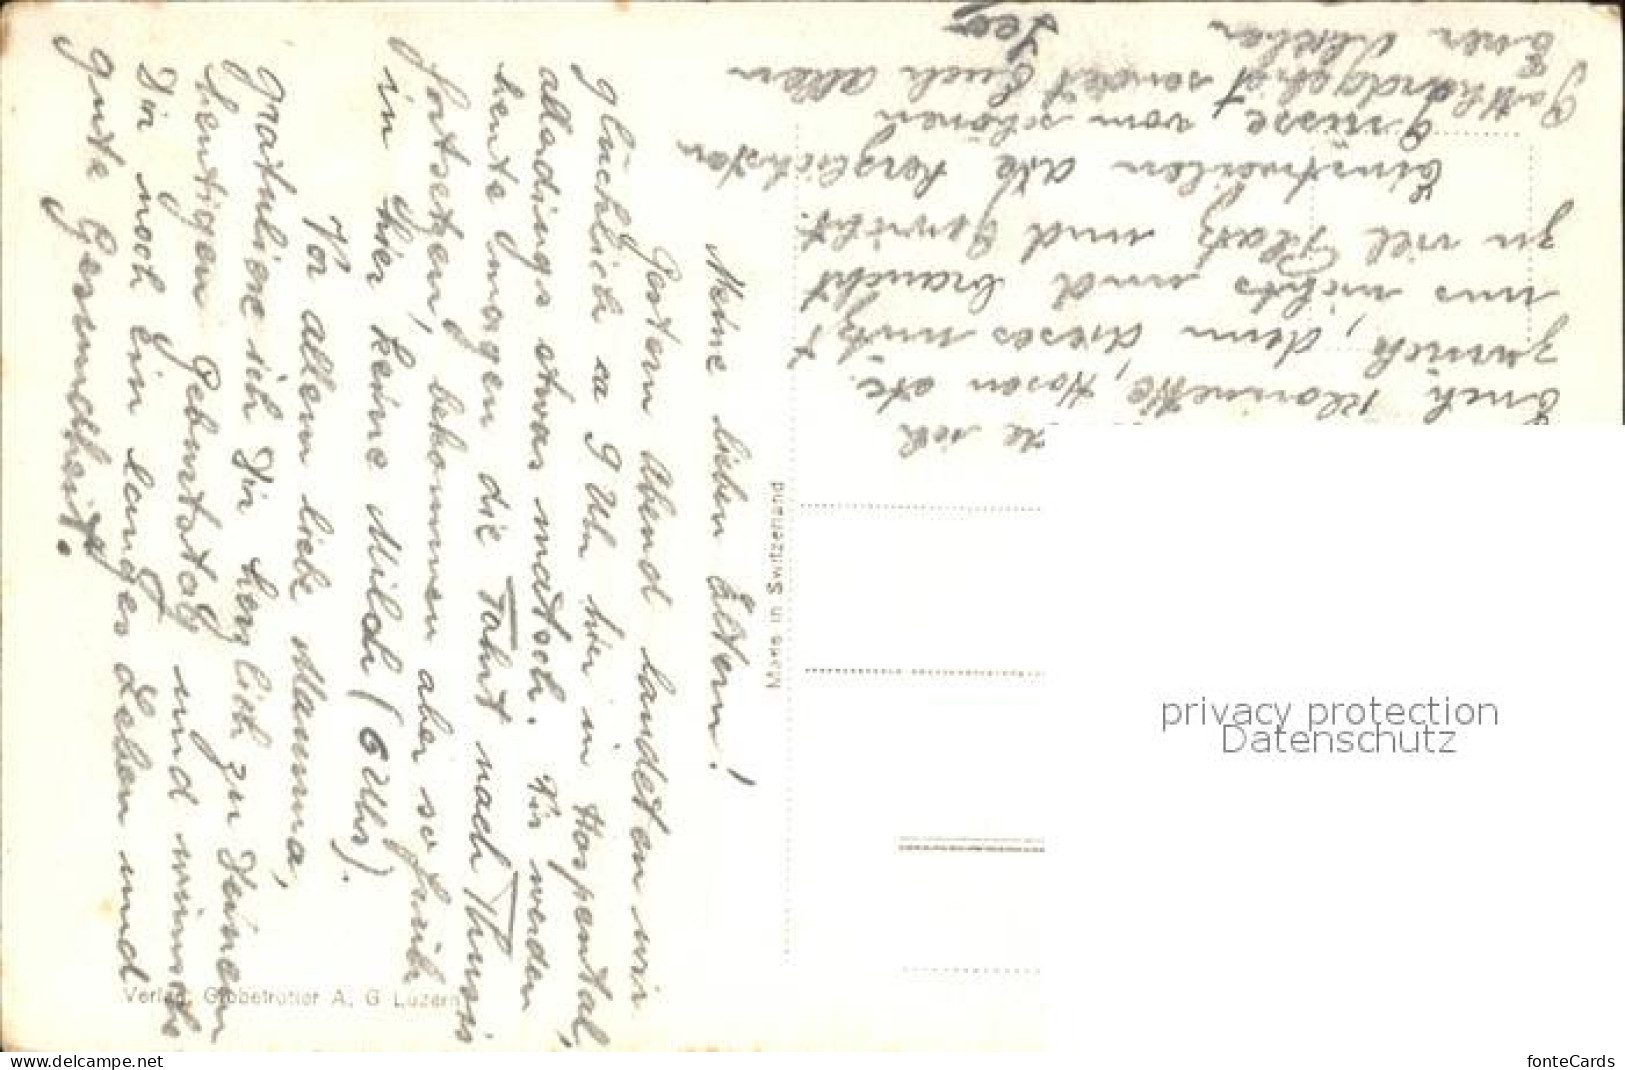 Meine lieben Eltern!
Gestern Abend landeten wir
glücklich ca 9 Uhr hier in Hospental,
allerdings etwas matsch. Wir werden
heute Morgen die Fahrt nach Thusis
fortsetzen, bekommen aber so früh
in hier keine Milch (6 Uhr).
Vor allem liebe Mamma,
gratuliere ich Dir herzlich zu Deinem
heutigen Geburtstag und wünsche
Dir noch ein langes Leben und
gute Gesundheit.
ich
Euch Hosen etc.
zurück, denn dieses nützt
uns nichts und braucht
zu viel Platz und Gewicht.
Einstweilen die herzlichsten
Grüsse, vom schönen
Gotthardgebiet sendet Euch allen
Euer
Leo
Made in Switzerland
Verlag: Globetrotter A. G. Luzern
privacy protection
Datenschutz
www.delcampe.net
fonteCards